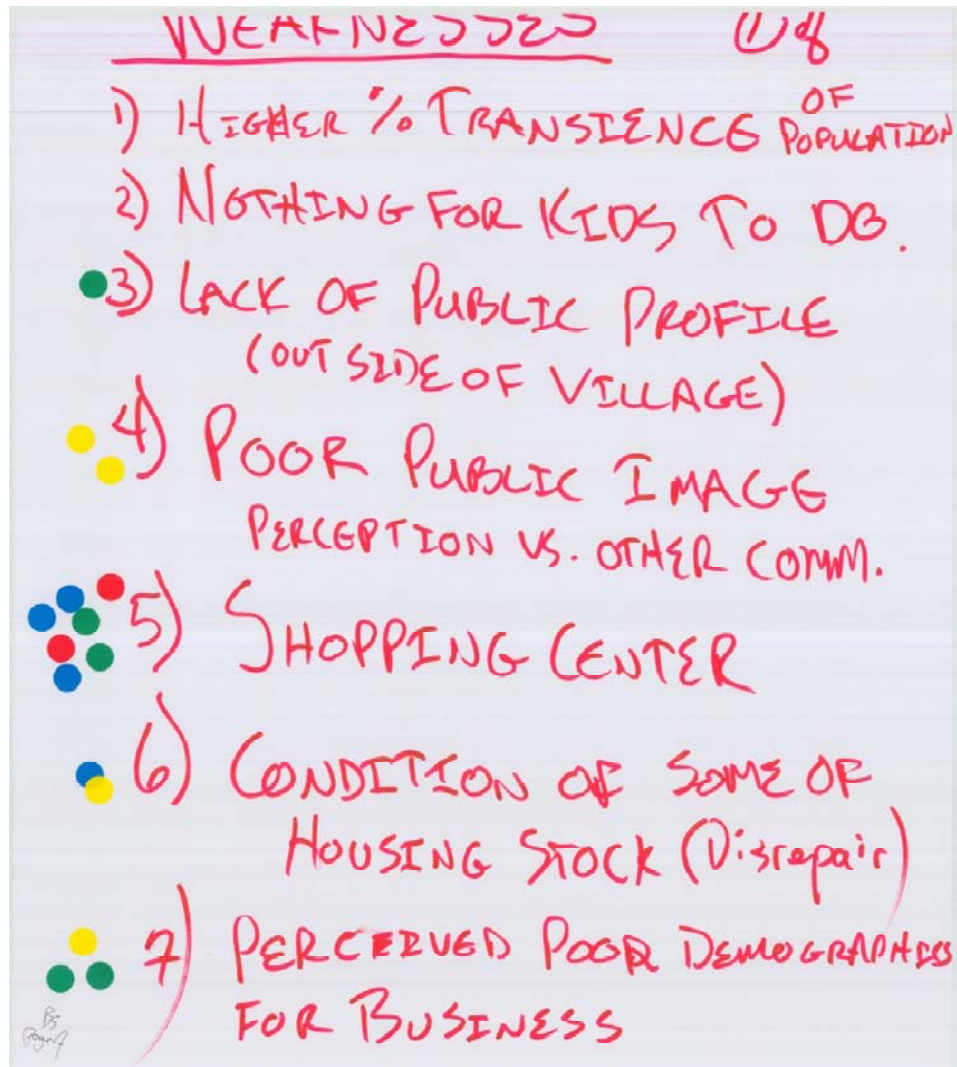 WEAKNESSES
1) HIGHER % TRANSIENCE OF POPULATION
2) NOTHING FOR KIDS TO DO.
3) LACK OF PUBLIC PROFILE
(OUTSIDE OF VILLAGE)
4) POOR PUBLIC IMAGE
PERCEPTION VS. OTHER COMM.
5) SHOPPING CENTER
6) CONDITION OF SOME OF
HOUSING STOCK (Disrepair)
7) PERCEIVED POOR DEMOGRAPHICS
FOR BUSINESS